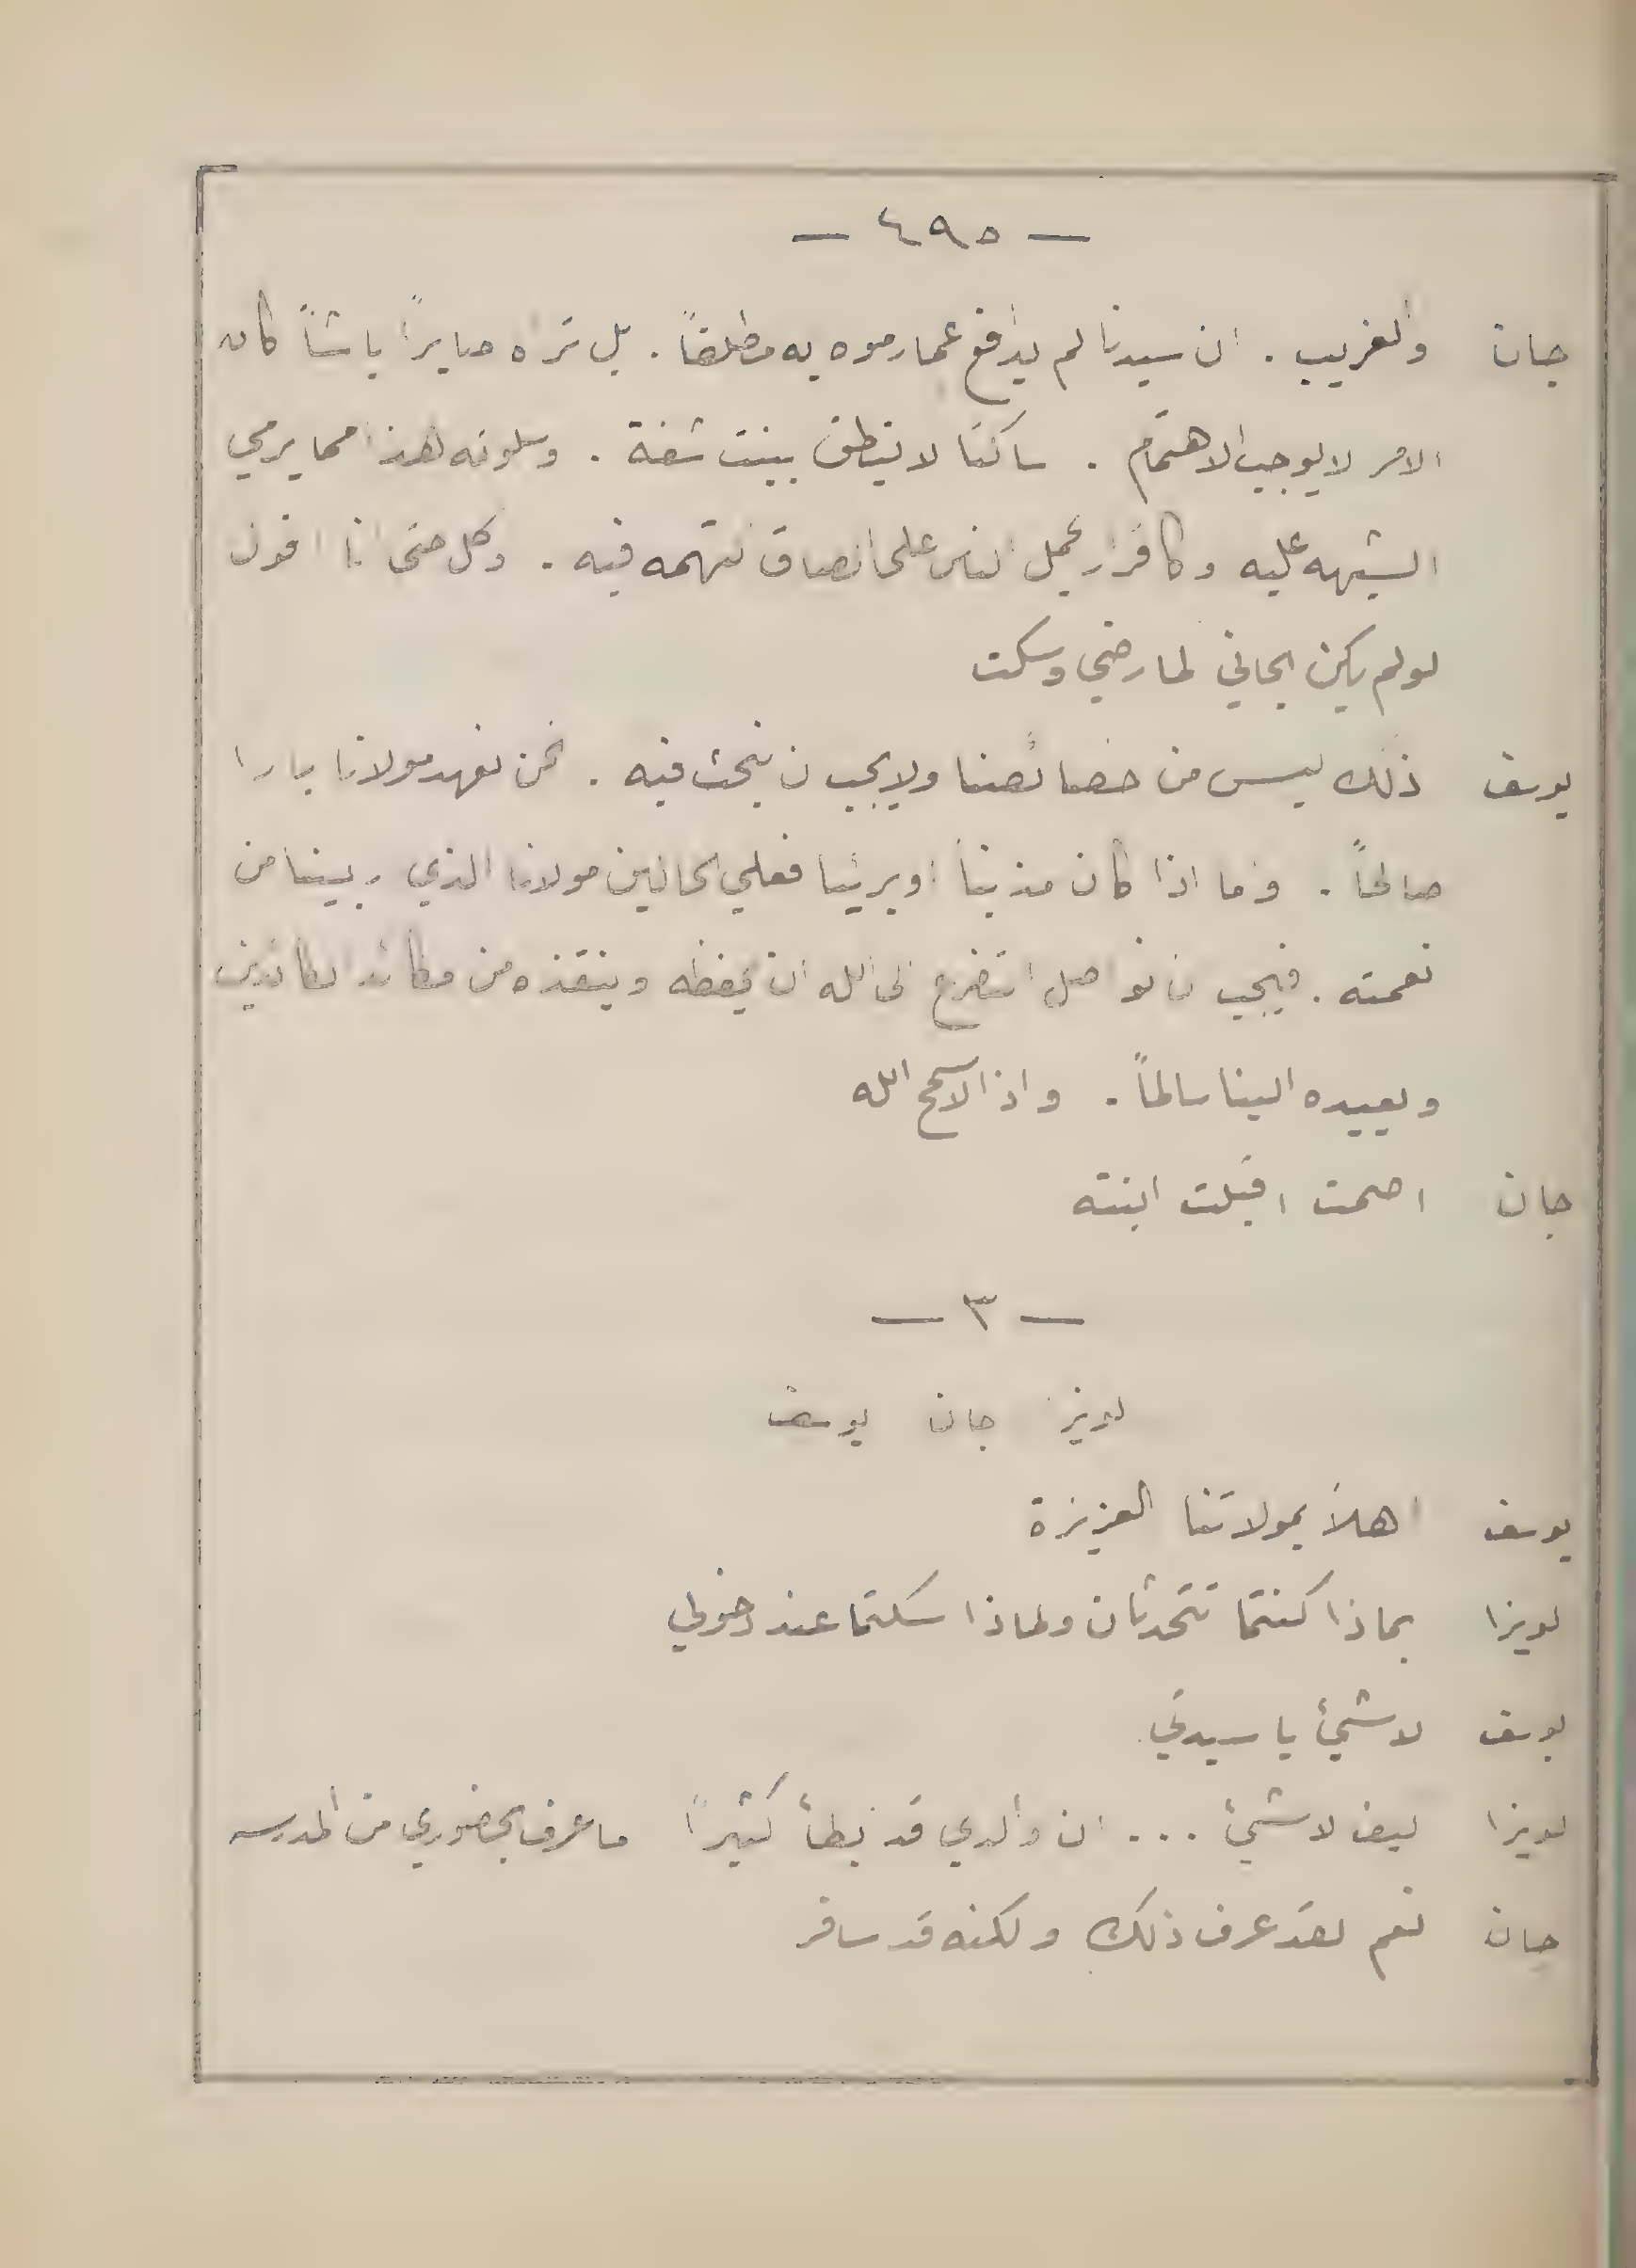 — ٤٩٥ —
جان والغريب . ان سيدنا لم يدافع عما رموه به مطلقاً . بل تراه صابراً باشاً كان
الامر لا يوجب الاهتمام . ساكتا لا ينطق ببنت شفة . وسكوته هذا مما يرمي
الشبهه عليه وكاقرار يحمل الناس على الصاق التهمه فيه . وكل حتى انا اقول
لو لم يكن الجاني لما رضي وسكت
يوسف ذلك ليس من خصائصنا ولا يجب ان نبحث فيه . نحن نعهد مولانا بارا
صالحاً . وما اذا كان مذنباً او بريئا فعلي الحالين مولانا الذي ربينا من
نعمته . فيجب ان نواصل التضرع الى الله ان يحفظه وينقذه من مكائد الكائدين
ويعيده الينا سالماً . واذا لا سمح الله
جان اصمت اقبلت ابنته
— ٣ —
لويز جان يوسف
يوسف اهلاً بمولاتنا العزيزة
لويزا بماذا كنتما تتحدثان ولماذا سكتما عند دخولي
يوسف لا شيئ يا سيدتي
لويزا كيف لا شيئ ... ان والدي قد ابطأ كثيراً ما عرف بحضوري من المدرسه
جان نعم لقد عرف ذلك ولكنه قد سافر